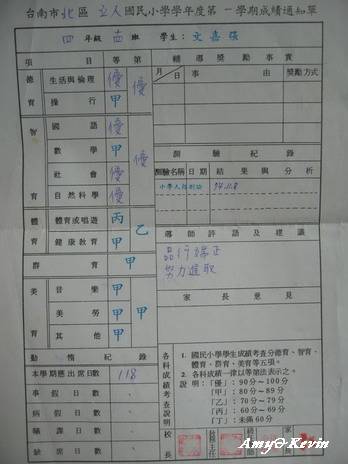 台南市北區立人國民小學學年度第一學期成績通知單
四年級 班 學生：文嘉
項目 等第 輔導獎勵事實
月 日 事由 獎勵方式
德育 生活與倫理 優 優
操行 甲
智育 國語 優 優
數學 甲
社會 優
自然科學 優
測驗紀錄
測驗名稱 日期 結果與分析
小學人格測驗 74.11.8
體育 體育或唱遊 丙 乙
健康教育 甲
群育 甲
導師評語及建議
品行端正
努力進取
美育 音樂 甲 甲
美勞 甲
其他 甲
家長意見
動惰紀錄
本學期應出席日數 118
事假日數
病假日數
曠課日數
缺席日數
各科成績考查說明
1. 國民小學學生成績考查分德育、智育、體育、群育、美育等五項。
2. 各科成績一律以等第法表示之。
說明：「優」：90分～100分
「甲」：80分～89分
「乙」：70分～79分
「丙」：60分～69分
「丁」：未滿60分
校長 教務主任 級任
Amy@Kevin